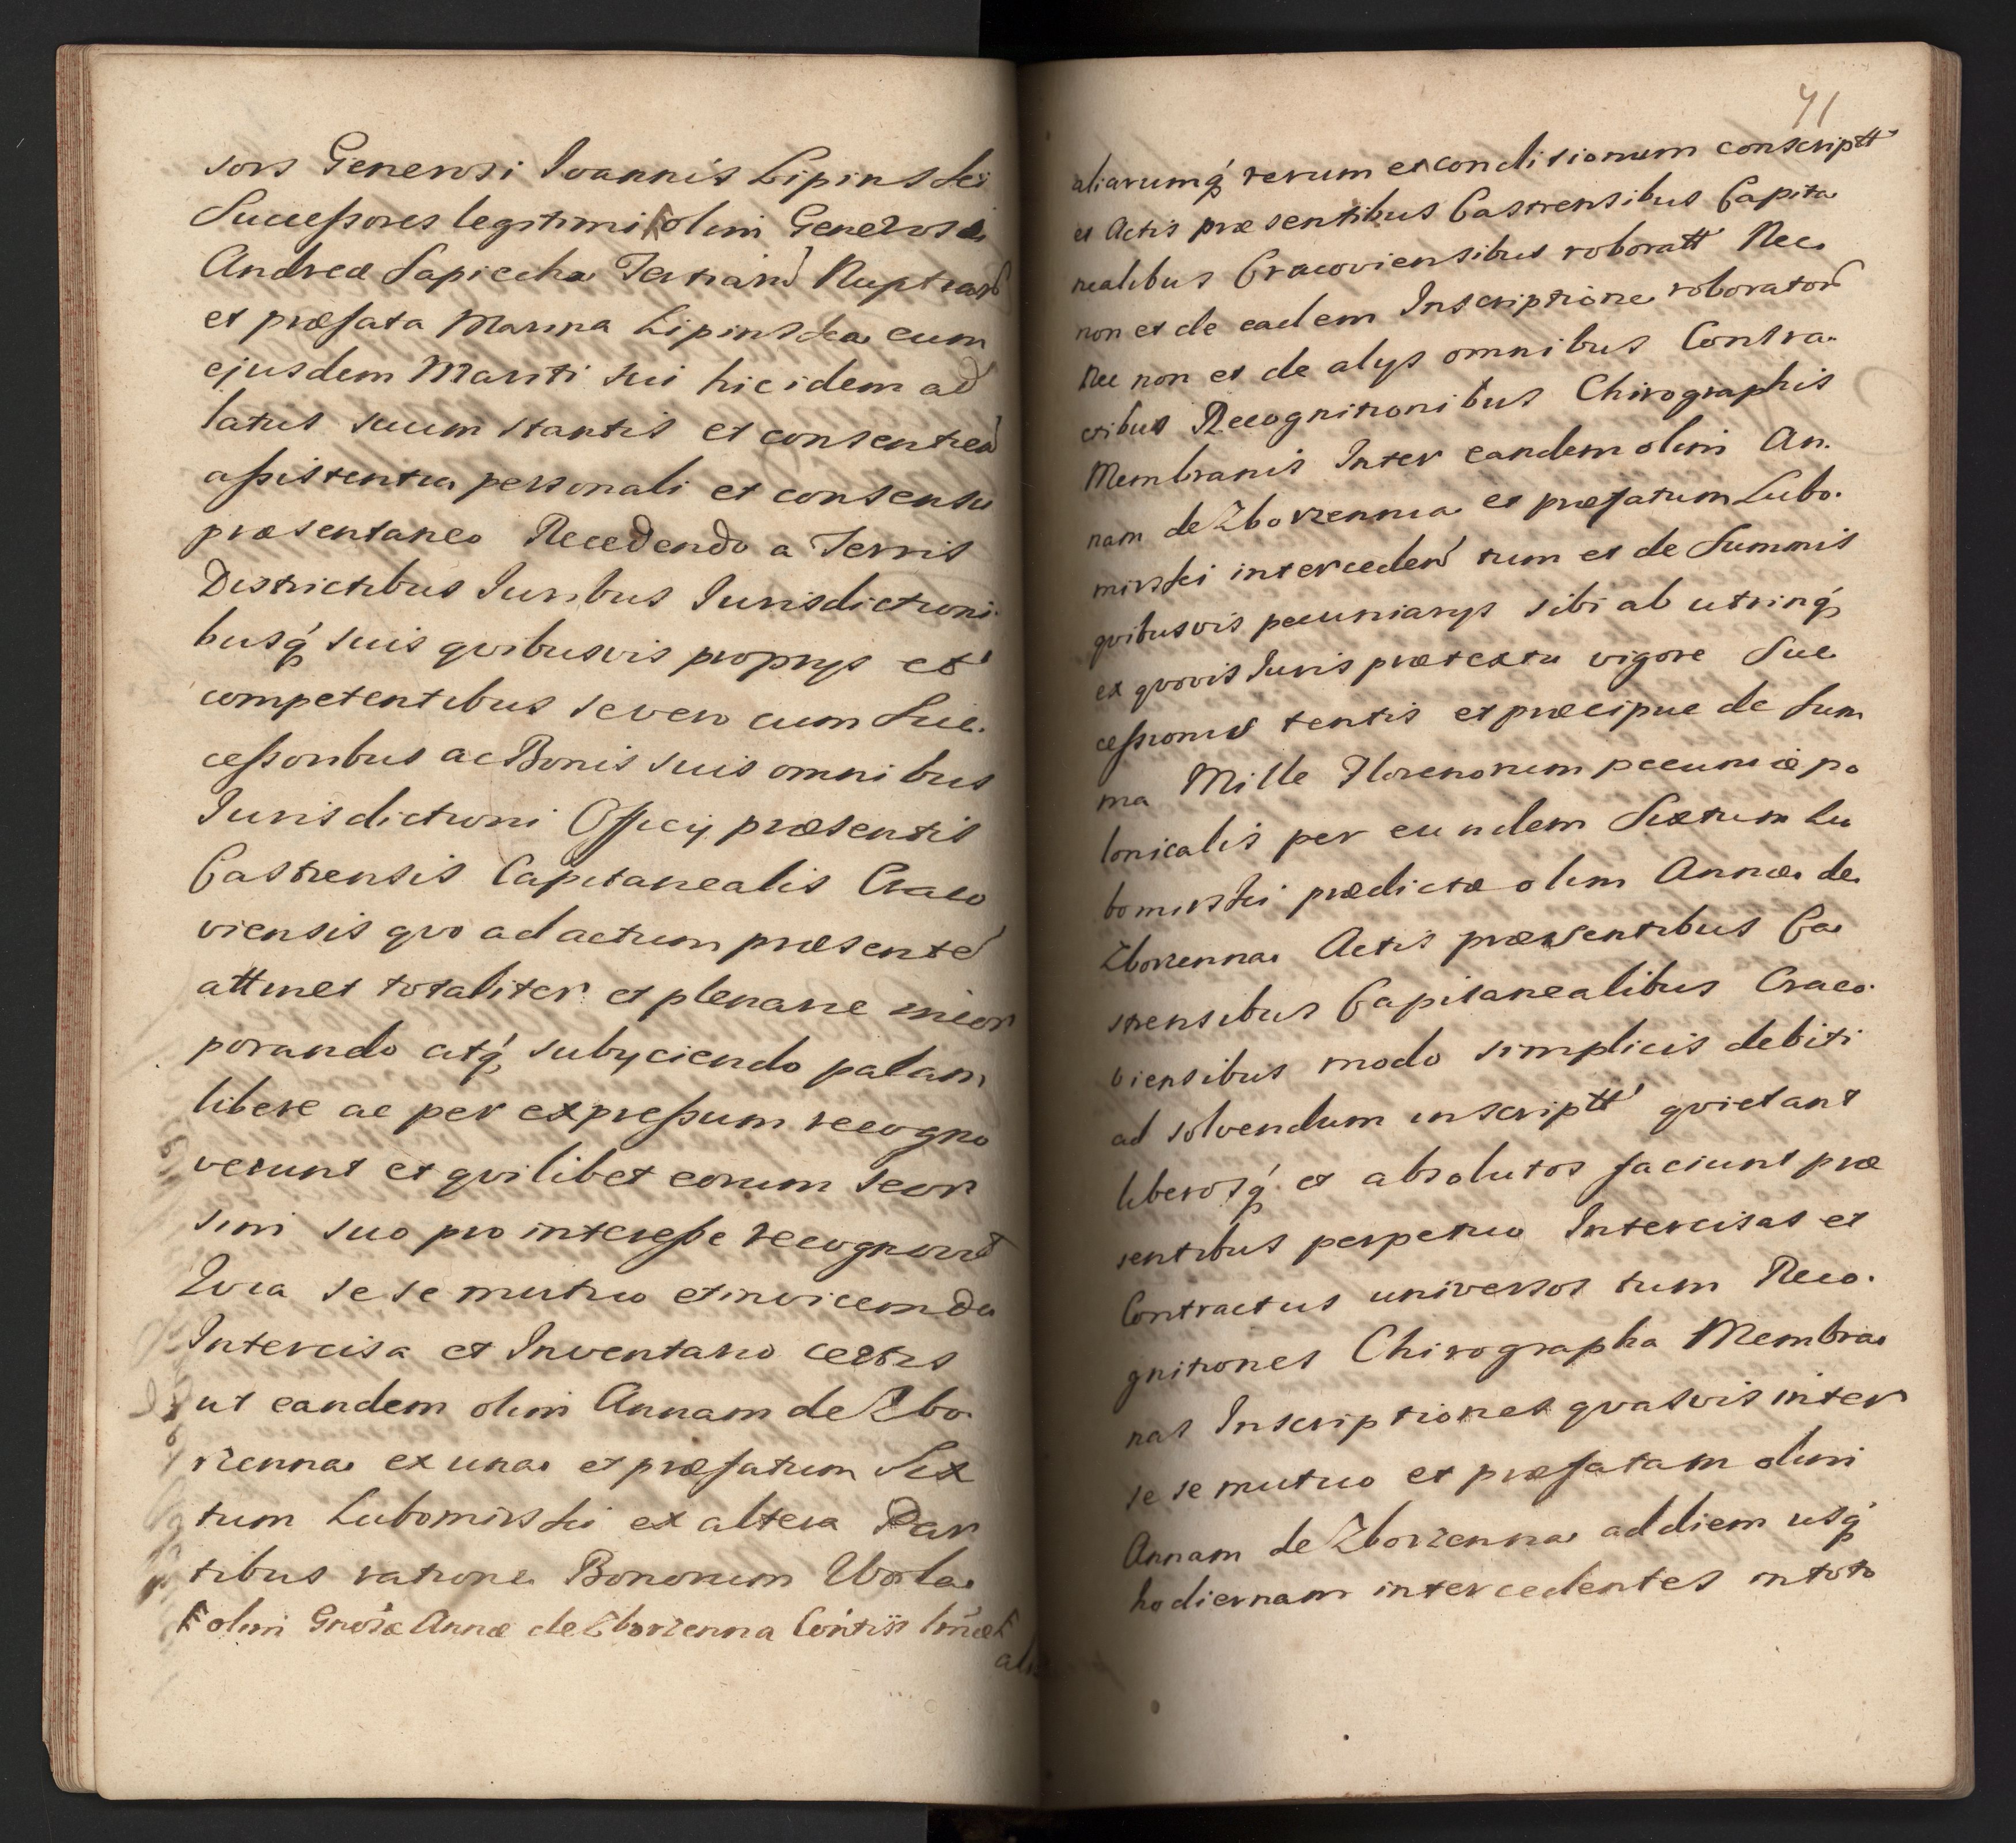 sors Generosi Ioannis Lipinski
Successores legitimi olim Generosi
Andreæ Sapiecha Tertiarū Nuptiarū
et præfata Marina Lipinska cum
ejusdem Mariti sui hic idem ad
latus suum stantis et consentien
assistentia personali et consensu
præsentaneo Recedendo a Terris
Districtibus Iuribus Iurisdictioni
busq́ suis qvibusvis proprys et
competentibus se vero cum Suc.
cessoribus ac Bonis suis omnibus
Iurisdictioni Officy præsentis
Castrensis Capitanealis Craco
viensis qvo ad actum præsente
attinet totaliter et plenarie incor
porando atq́ subyciendo palam
libere ac per expressum recogno
verunt et qvilibet eorum seor
sim suo pro interesse recognovit
Qvia se se mutuo et invicem de
Intercisa et Inventario certis
ut eandem olim Annam de Zbo.
rzenna ex una et præfatum Six
tum Lubomirski ex altera Par
tibus ratione Bonorum Wola
olim Gnosæ Annæ de Zborzenna
ali
41
aliarumq́ rerum et conditionum conscriptt
et Actis præsentibus Castrensibus Capita
nealibus Cracoviensibus roboratt Nec
non et de eadem Inscriptione roborator
Nec non et de alys omnibus Contra.
ctibus Recognitionibus Chirographis
Membranis Inter eandem olim An.
nam de Zborzenna et præfatum Lubo.
mirski interceden tum et de Summis
qvibusvis pecuniarys sibi ab utrinq́
ex qvovis Iuris prætextu vigore Suc
cessionis tentis et præcipue de Sum
ma Mille Florenorum pecuniæ po
lonicalis per eundem Sixtum Lu
bomirski prædictæ olim Annæ de
Zborzenna Actis præsentibus Ca
strensibus Capitanealibus Craco.
viensibus modo simplicis debiti
ad solvendum inscriptt qvietant
liberosq́ et absolutos faciunt præ
sentibus perpetuo Intercisas et
Contractus universos tum Reco.
gnitiones Chirographa Membra
nas Inscriptiones qvasvis inter
se se mutuo et præfatam olim
Annam de Zborzenna ad diem usq́
hodiernam intercedentes in toto